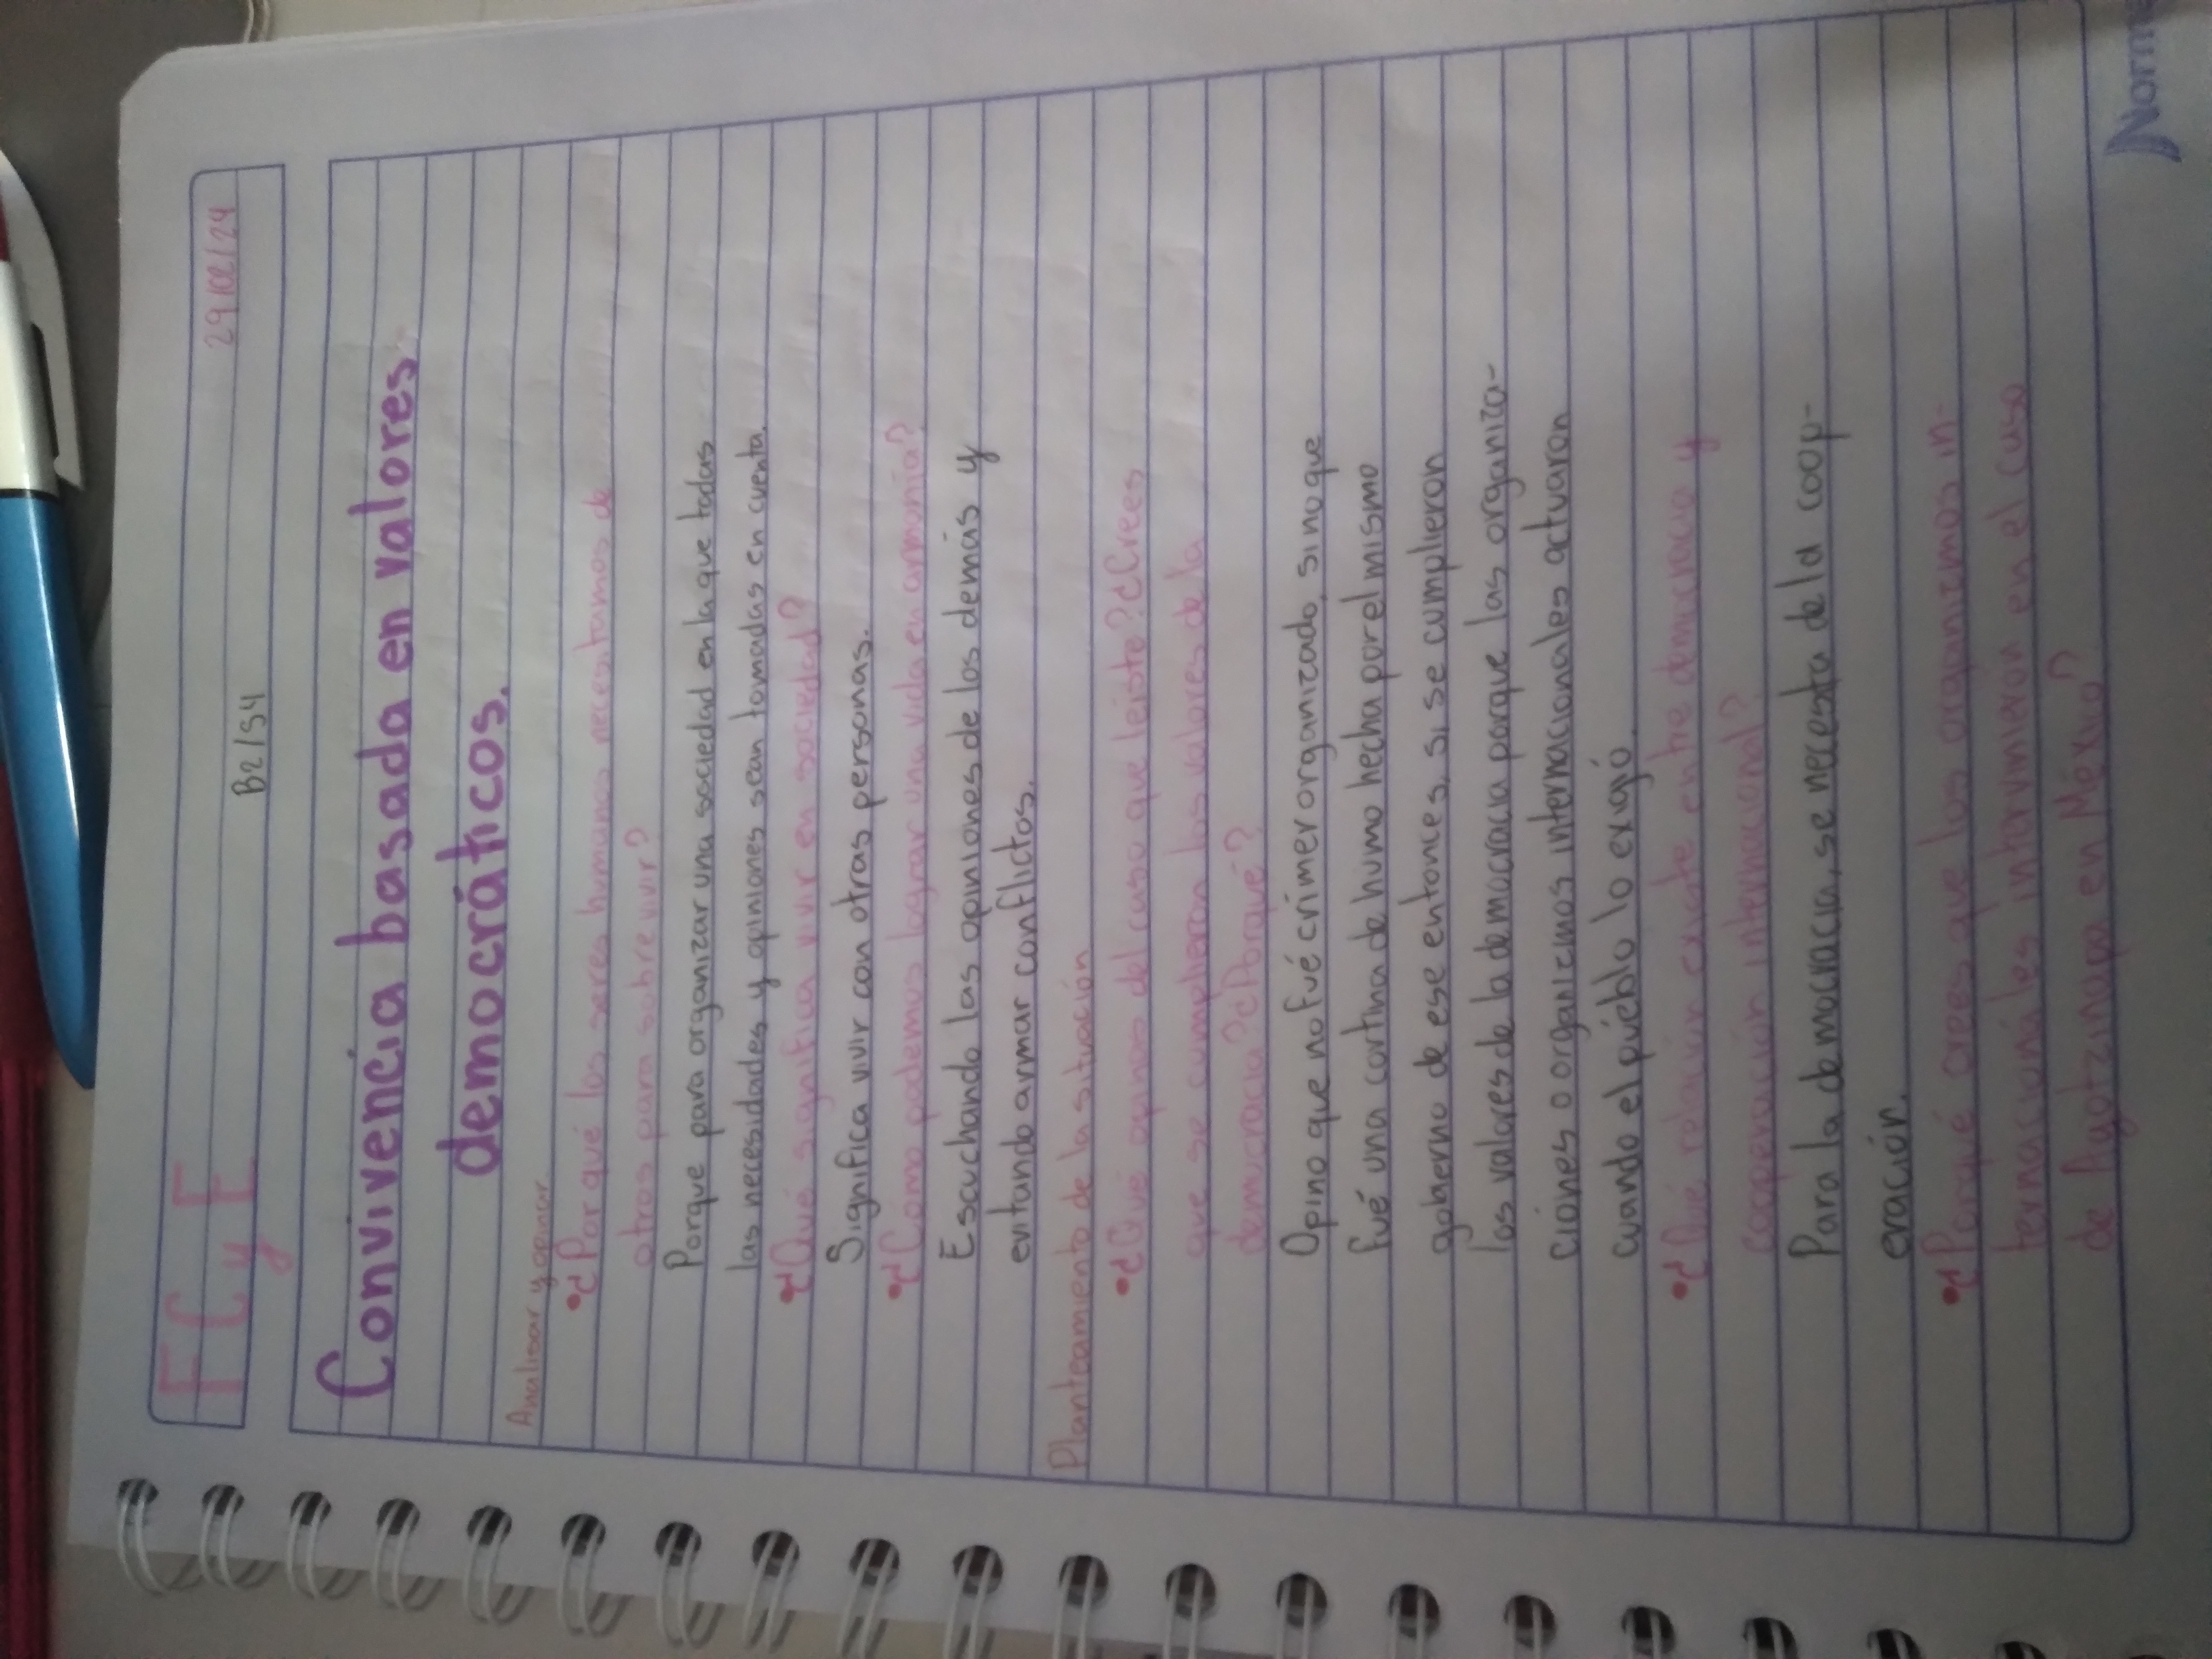 F C y E
29/02/24
B2/S4
Convivencia basada en valores
democráticos.
Analisar y opinar
•¿Por qué los seres humanos necesitamos de
otros para sobrevivir?
Porque para organizar una sociedad en la que todas
las necesidades y opiniones sean tomadas en cuenta.
•¿Qué significa vivir en sociedad?
Significa vivir con otras personas.
•¿Cómo podemos lograr una vida en armonía?
Escuchando las opiniones de los demás y
evitando armar conflictos.
Planteamiento de la situación
•¿Qué opinas del caso que leíste? ¿Crees
que se cumplieron los valores de la
democracia? ¿Porqué?
Opino que no fué crimer organizado, sino que
fué una cortina de humo hecha por el mismo
gobierno de ese entonces, si se cumplieron
los valores de la democracia porque las organiza-
ciones o organizmos internacionales actuaron
cuando el pueblo lo exigó.
•¿Qué relación existe entre democracia y
cooperación internacional?
Para la democracia, se necesita de la coop-
eración.
•¿Porqué crees que los organizmos in-
ternacionales intervinieron en el caso
de Ayotzinapa en México?
Norma